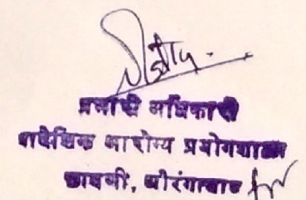 प्रभारी अधिकारी
प्रादेशिक आरोग्य प्रयोगशाळा
छावनी, औरंगाबाद